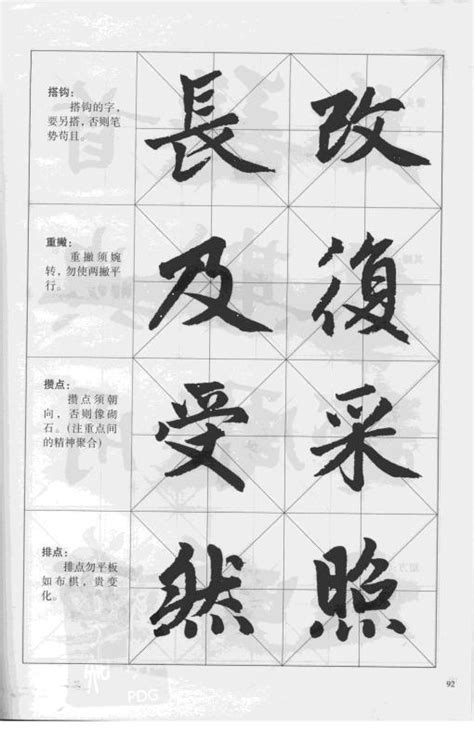 搭钩：
搭钩的字，
要另搭，否则笔
势苟且。
長 改
重撇：
重撇须婉
转，勿使两撇平
行。
及 復
攒点：
攒点须朝
向，否则像砌
石。(注重点间
的精神聚合)
受 采
排点：
排点勿平板
如布棋，贵变
化。
然 照
PDG
92